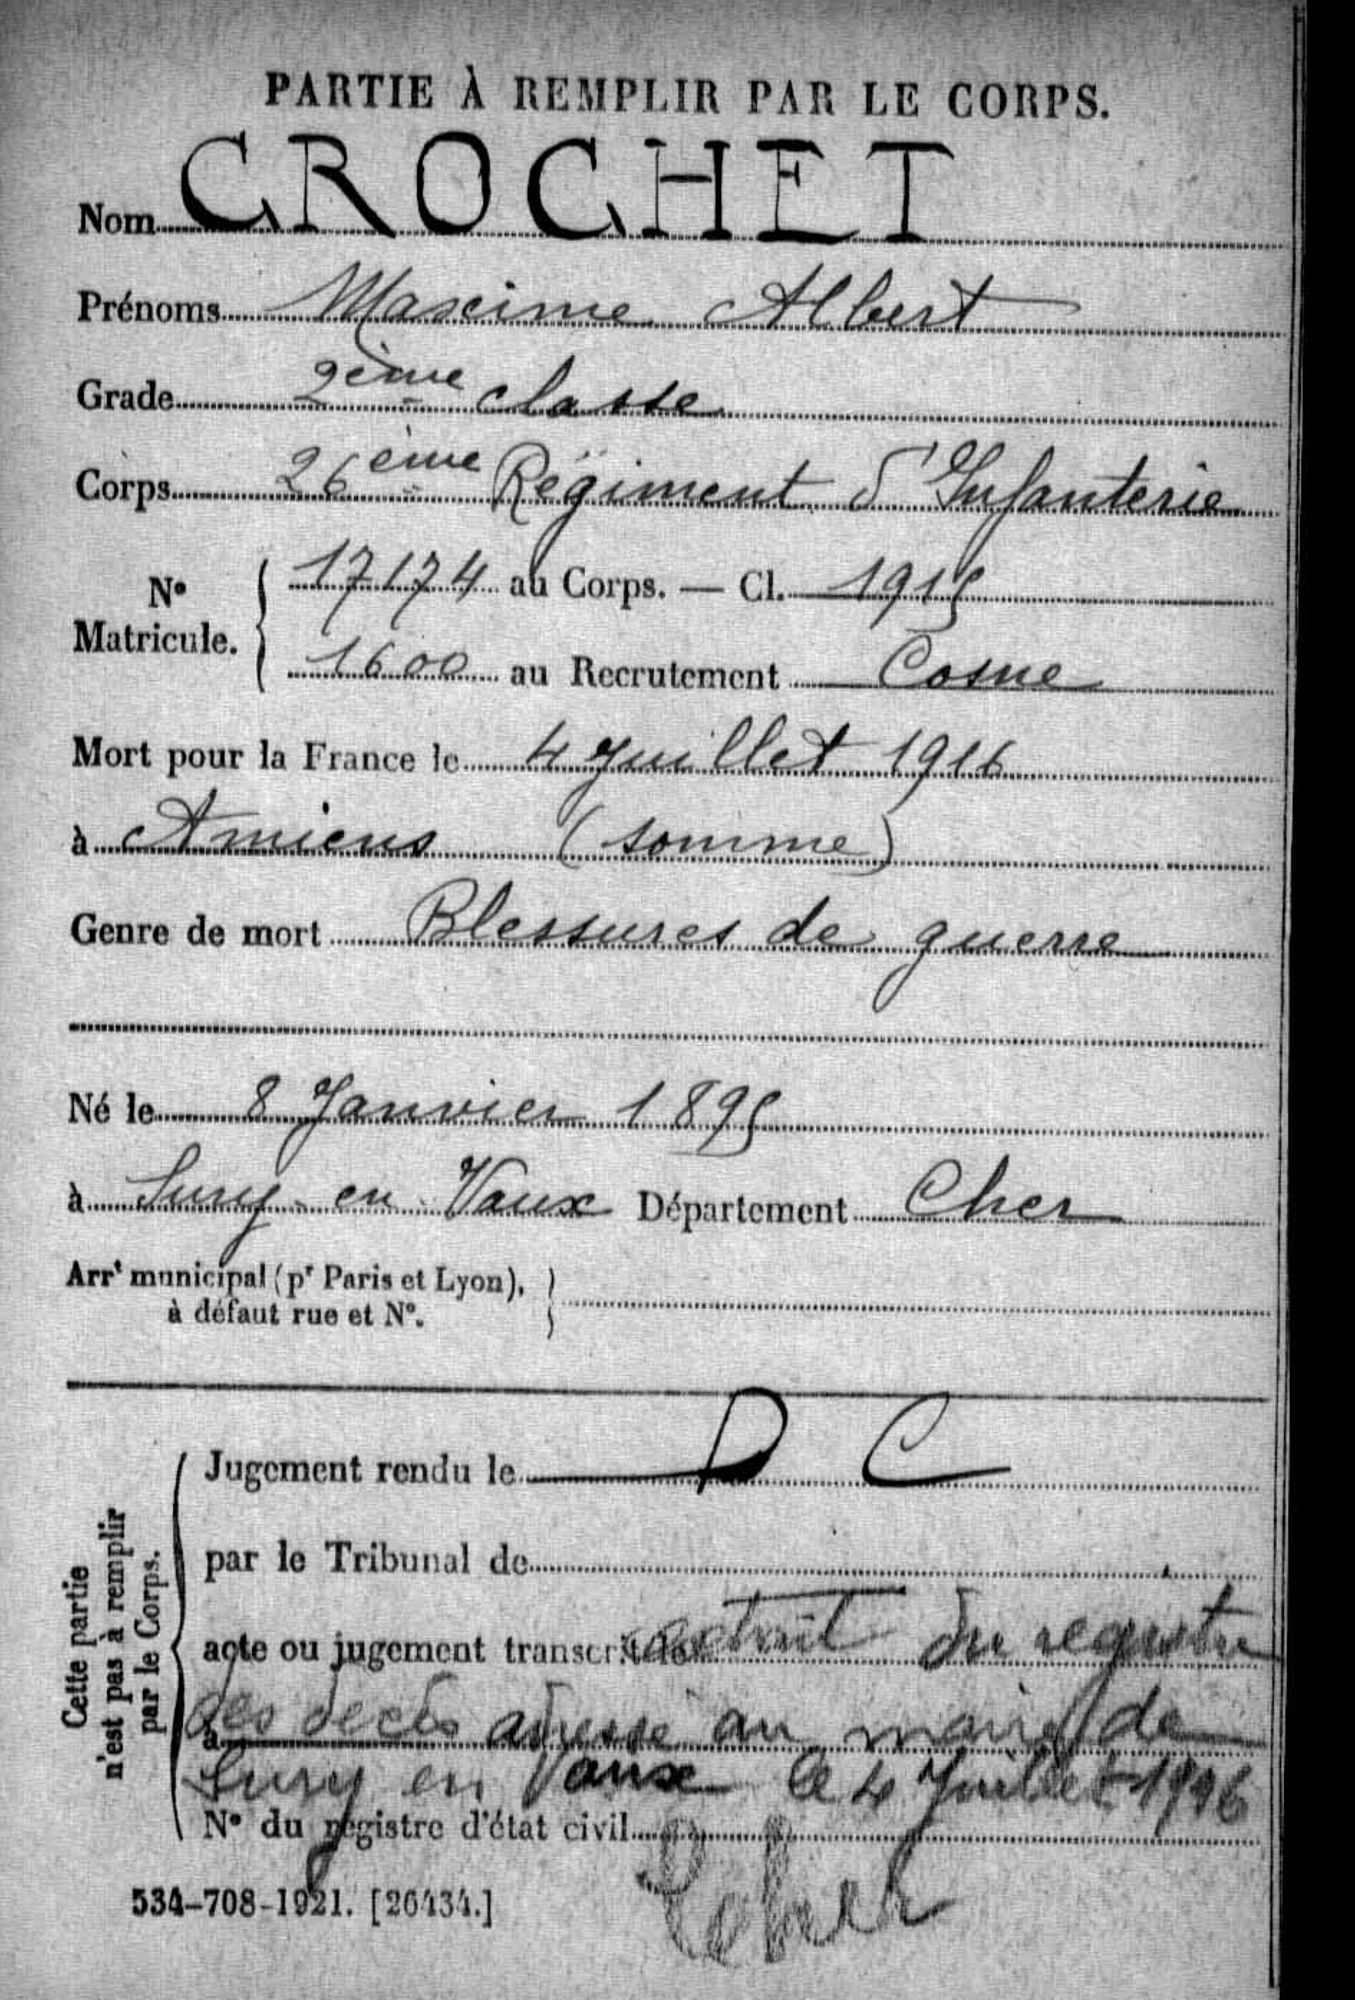 PARTIE À REMPLIR PAR LE CORPS.
Nom CROCHET
Prénoms Maxime Albert
Grade 2ème classe
Corps 26ème Régiment d'Infanterie
N° Matricule. { 17174 au Corps. — Cl. 1915
1600 au Recrutement Cosne
Mort pour la France le 4 Juillet 1916
à Amiens (Somme)
Genre de mort Blessures de guerre
Né le 8 Janvier 1895
à Sury en Vaux Département Cher
Arrt municipal (pr Paris et Lyon),
à défaut rue et N°. }
Cette partie
n'est pas à remplir
par le Corps.
Jugement rendu le D C
par le Tribunal de
acte ou jugement transcrit le extrait du registre
à des decés adressé au maire de
Sury en Vaux le 4 Juillet 1916
N° du registre d'état civil
Cher
534-708-1921. [26434.]